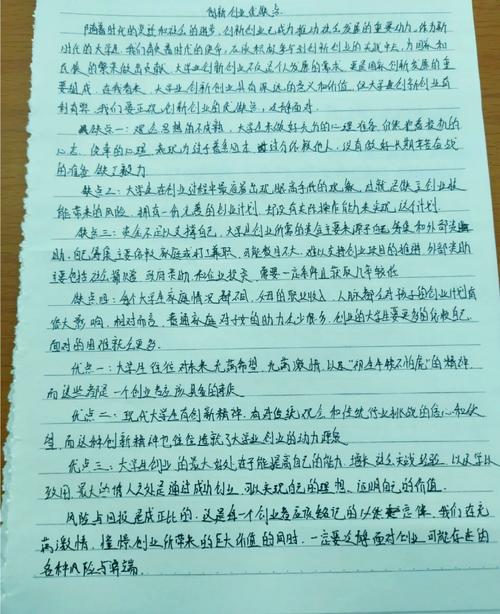 创新创业优缺点
随着时代的变迁和社会的进步,创新创业已成为推动社会发展的重要动力。作为新
时代的大学生,我们肩负着时代的使命,应积极参与到创新创业的实践中去,为国家和
民族的繁荣做出贡献。大学生创新创业不仅是个人发展的需求,更是国家创新发展的重
要组成。在我看来,大学生创新创业具有深远的意义和价值,但大学生创新创业有
利有弊,我们要正视创新创业的优缺点,
缺点一:观念思想的不成熟,大学生未做好长久的心理准备,抱着投机的
心态、侥幸的心理,表现为过于看重自己,过分依赖他人,没有做好长期
的准备,缺了毅力
缺点二:大学生在创业过程中最容易出现眼高手低的现象,创业技
能带来的风险,拥有一份完善的创业计划,却没有实际操作能力来实现,这个计划。
缺点三:资金不足以支撑自己,大学生创业所需的资金主要来源于自己筹集和外部资
助,自己筹集主要依赖家庭或打工兼职,可能数目不大,难以支持创业项目的推进,外部资助
主要包括社会募资、政府资助,和企业投资,需要一定条件且获取几率较低
缺点四:每个大学生家庭情况都不同,父母的职业收入、人脉都会对孩子的创业计划有
很大影响,相对而言,普通家庭对子女的助力会少很多,创业的大学生要更多的依赖自己,
面对的困难就会更多。
优点一:大学生往往对未来充满希望,充满激情,以及“初生牛犊不怕虎”的精神,
而这些都是一个创业者应该具备的素质
优点二:现代大学生有创新精神,有对传统观念和传统行业挑战的信心和欲
望,而这种创新精神也往往造就了大学生创业的动力源泉
优点三:大学生创业的最大好处在于能提高自己的能力、增长社会实践经验,以及学以
致用,最大的诱人之处是通过成功创业,可以实现自己的理想,证明自己的价值。
风险与回报是成正比的,这是每一个创业者应该铭记的,我们在充
满激情,憧憬创业所带来的巨大价值的同时,一定要了解面对创业,可能存在的
各种风险与弊端。